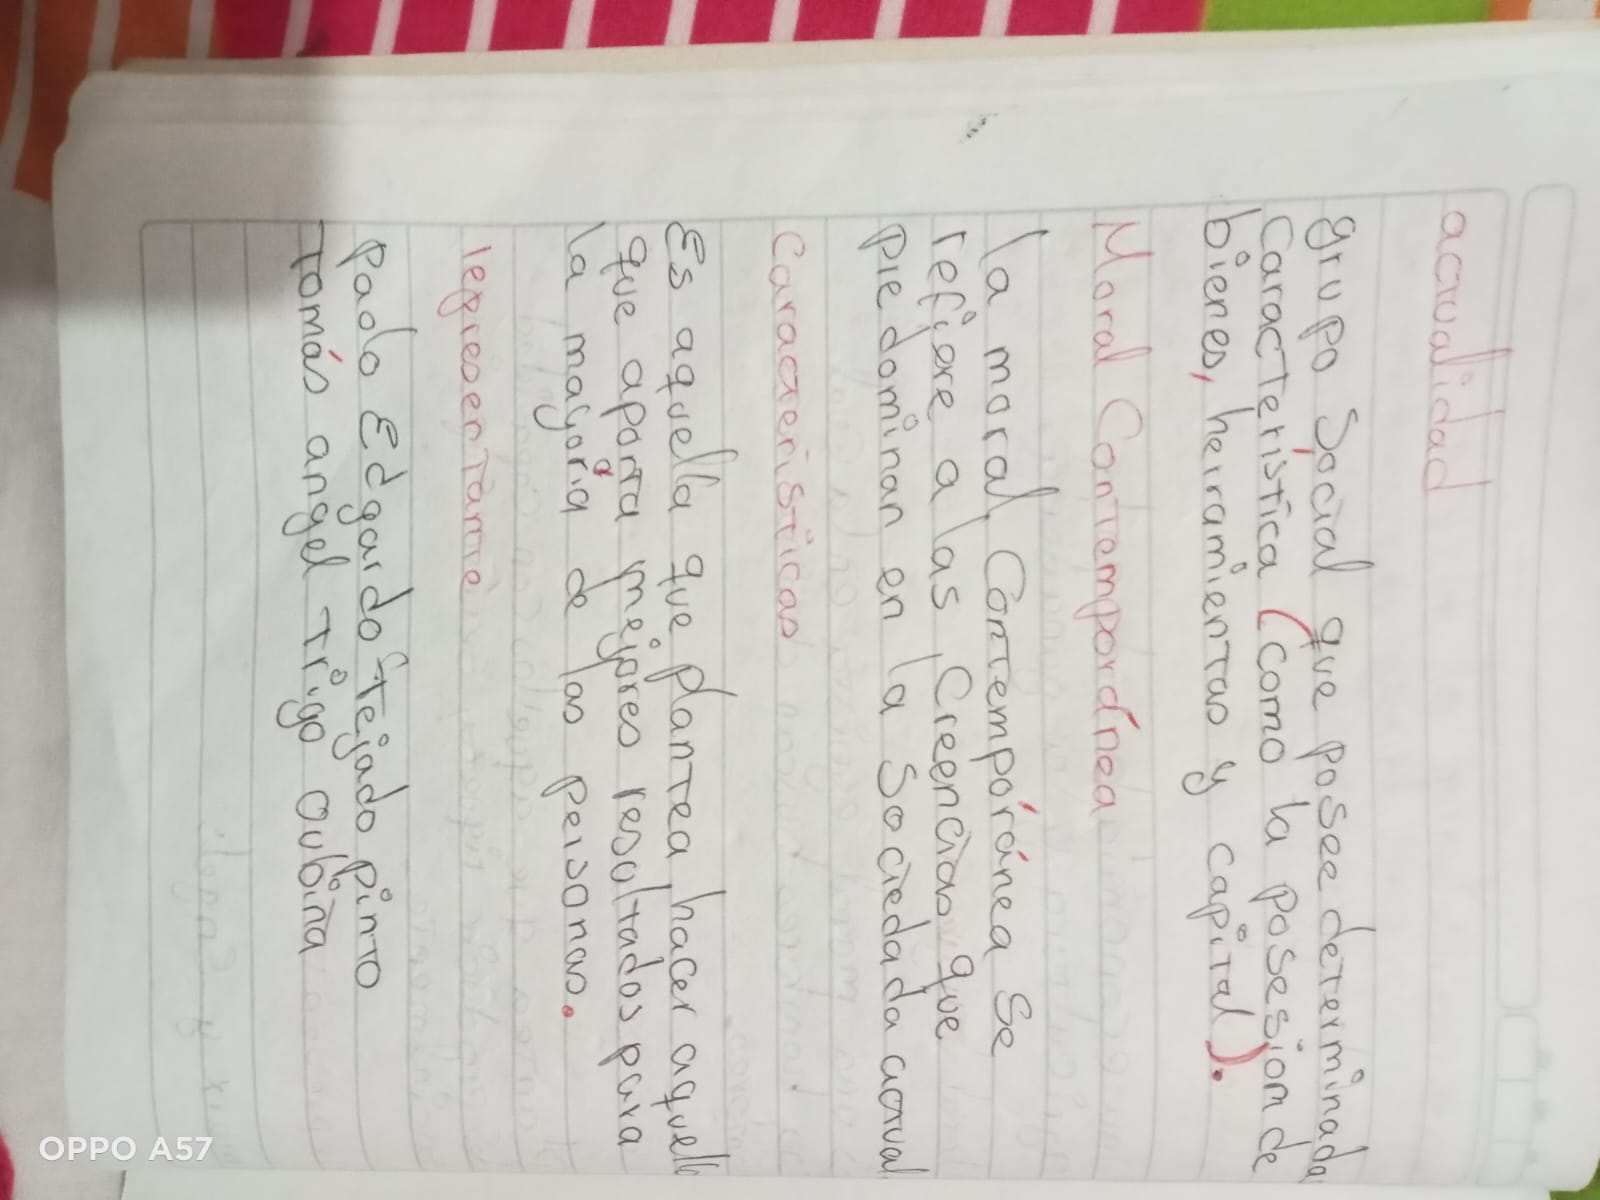 actualidad
grupo Social que posee determinada
Característica (como la posesiom de
bienes, herramientas y capital).
Moral Contemporánea
la moral Contemporánea se
refiere a las Creencias que
predominan en la Sociedada actual
Caracteristicas
Es aquella que plantea hacer aquell
que aporta mejores resultados para
la mayoria de las personas.
representante
Paolo Edgardo Tejado pinto
Tomás angel Trigo oubiña
OPPO A57